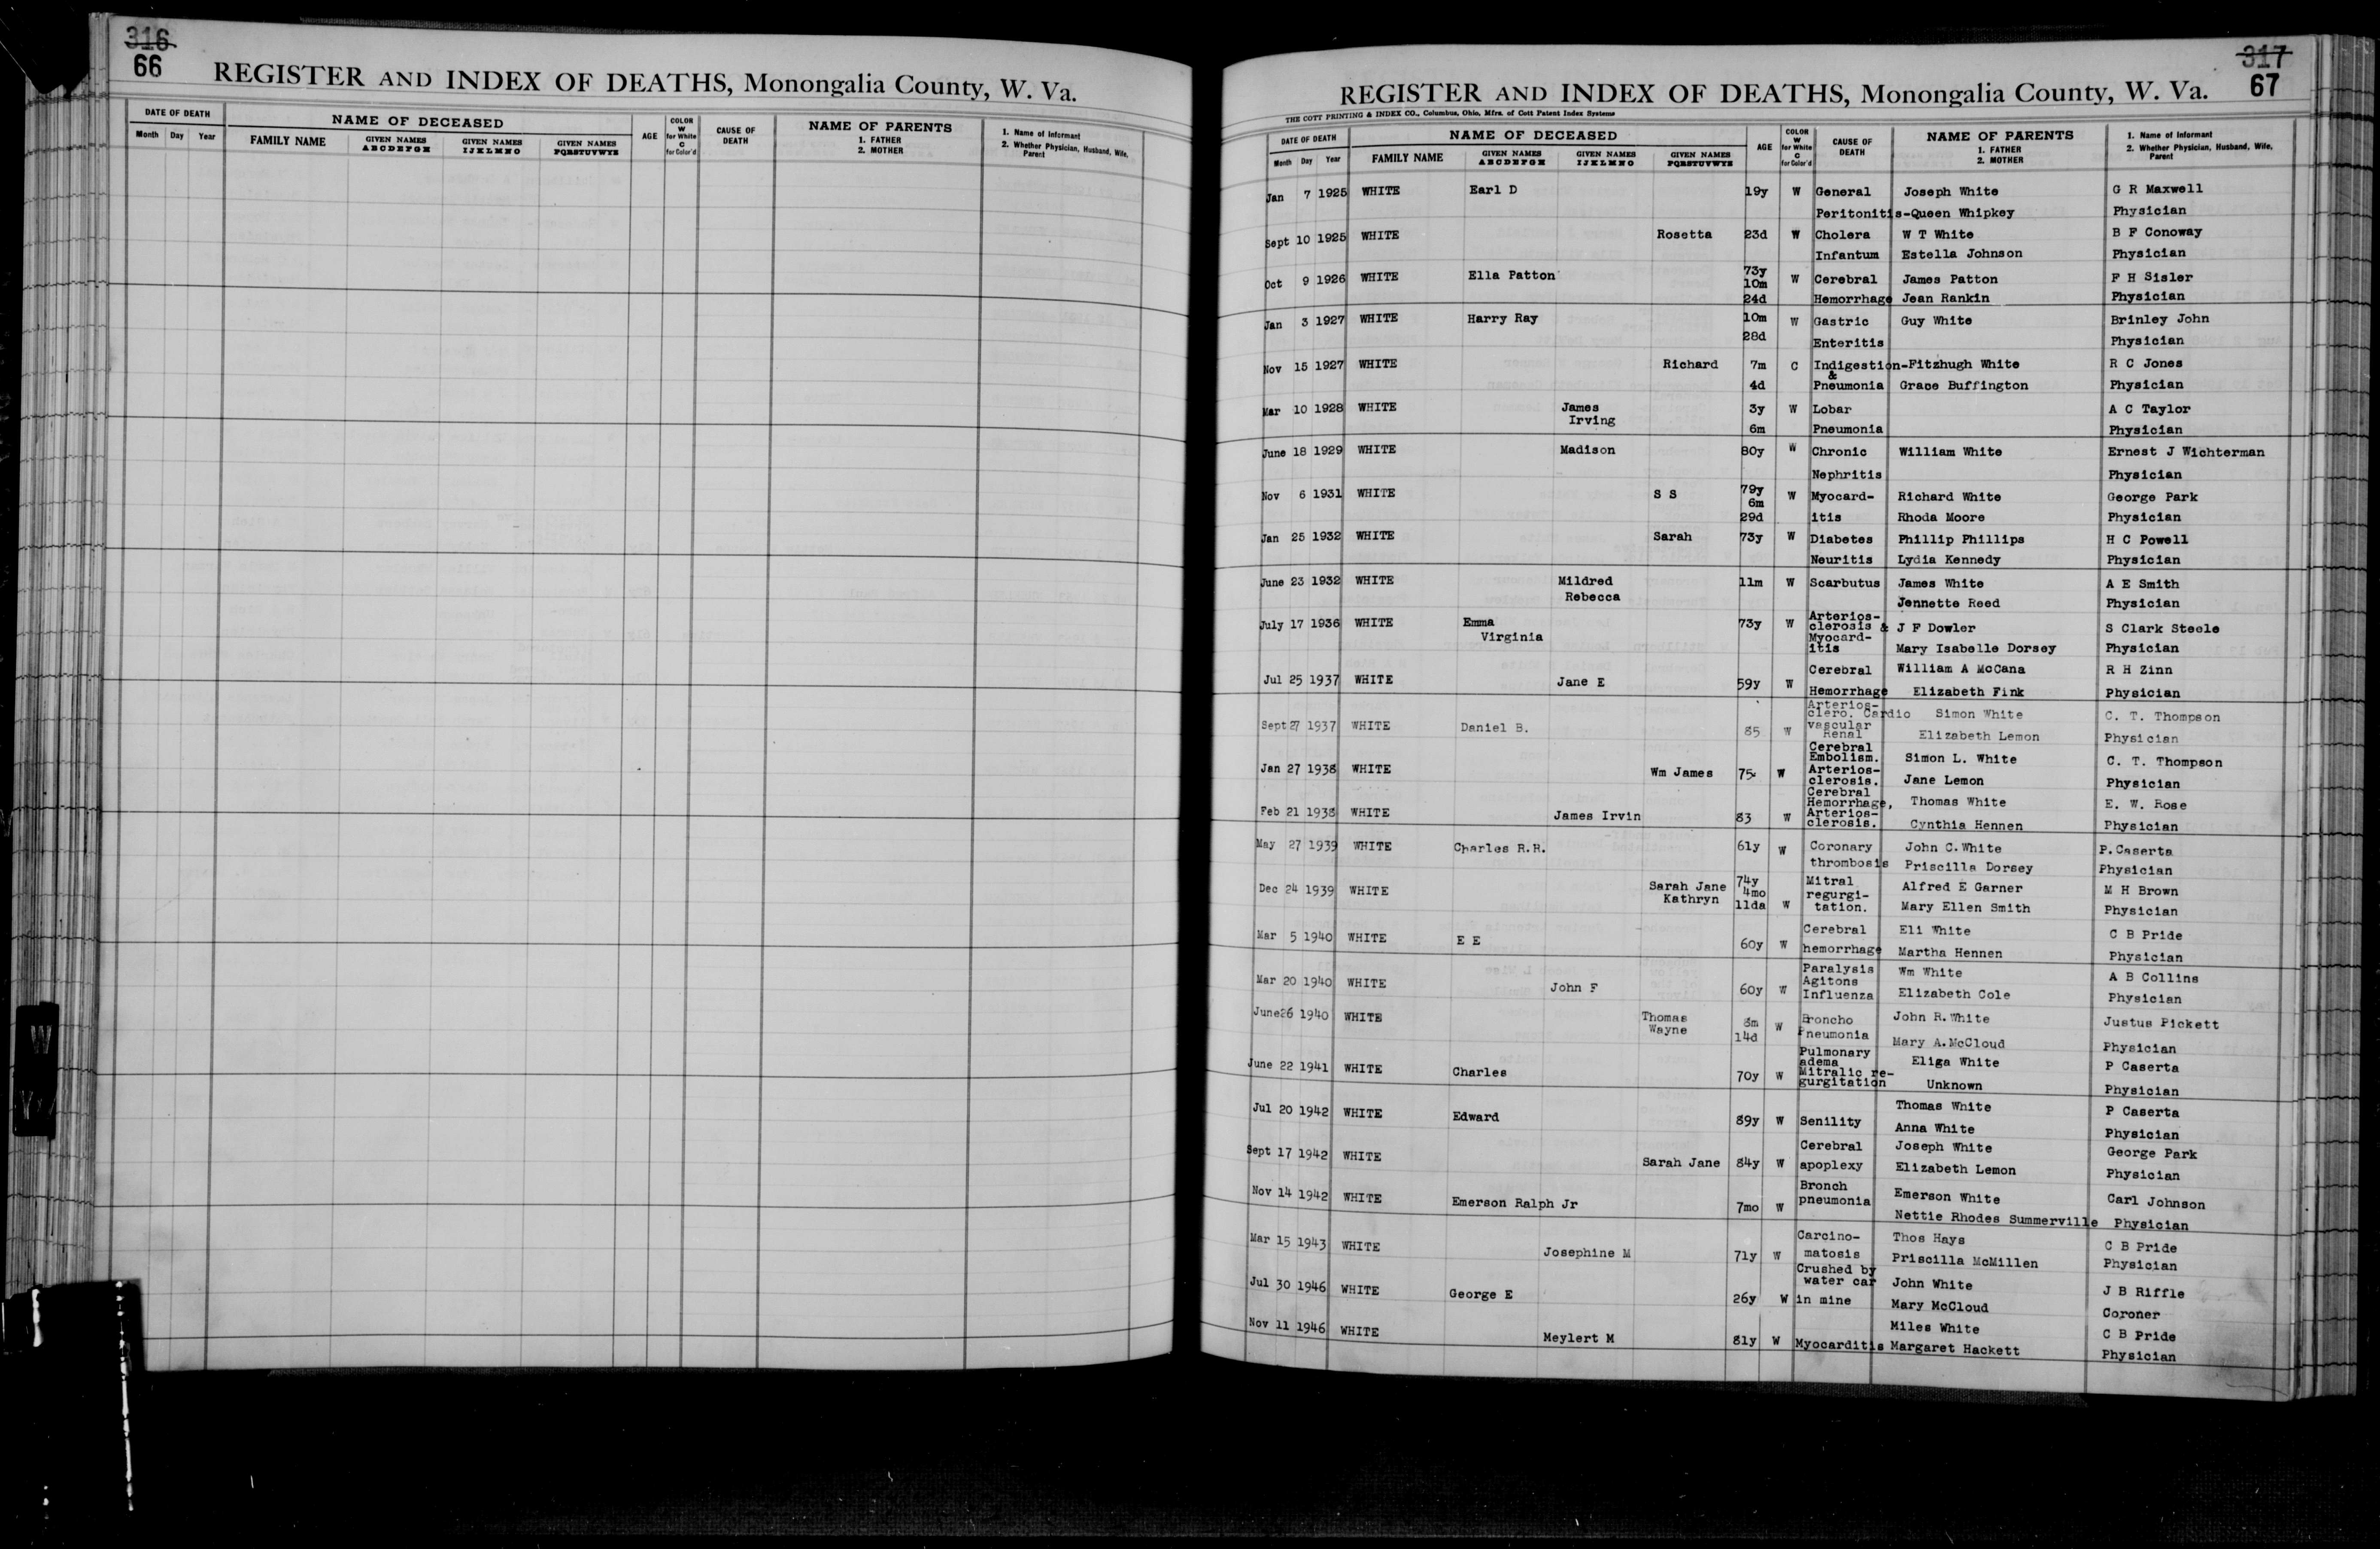 316
66
REGISTER AND INDEX OF DEATHS, Monongalia County, W. Va.
DATE OF DEATH NAME OF DECEASED AGE COLOR W for White C for Color'd CAUSE OF DEATH NAME OF PARENTS 1. FATHER 2. MOTHER 1. Name of Informant 2. Whether Physician, Husband, Wife, Parent
Month Day Year FAMILY NAME GIVEN NAMES ABCDEFGH GIVEN NAMES IJKLMNO GIVEN NAMES PQRSTUVWYZ
317
67
REGISTER AND INDEX OF DEATHS, Monongalia County, W. Va.
THE COTT PRINTING & INDEX CO., Columbus, Ohio, Mfrs. of Cott Patent Index Systems
DATE OF DEATH NAME OF DECEASED AGE COLOR W for White C for Color'd CAUSE OF DEATH NAME OF PARENTS 1. FATHER 2. MOTHER 1. Name of Informant 2. Whether Physician, Husband, Wife, Parent
Month Day Year FAMILY NAME GIVEN NAMES ABCDEFGH GIVEN NAMES IJKLMNO GIVEN NAMES PQRSTUVWYZ
Jan 7 1925 WHITE Earl D 19y W General Joseph White G R Maxwell
Peritonitis-Queen Whipkey Physician
Sept 10 1925 WHITE Rosetta 23d W Cholera W T White B F Conoway
Infantum Estella Johnson Physician
73y
Oct 9 1926 WHITE Ella Patton 10m W Cerebral James Patton F H Sisler
24d Hemorrhage Jean Rankin Physician
Jan 3 1927 WHITE Harry Ray 10m W Gastric Guy White Brinley John
28d Enteritis Physician
Nov 15 1927 WHITE Richard 7m C Indigestion-Fitzhugh White R C Jones
&
4d Pneumonia Grace Buffington Physician
Mar 10 1928 WHITE James 3y W Lobar A C Taylor
Irving 6m Pneumonia Physician
June 18 1929 WHITE Madison 80y W Chronic William White Ernest J Wichterman
Nephritis Physician
Nov 6 1931 WHITE S S 79y W Myocard- Richard White George Park
6m
29d itis Rhoda Moore Physician
Jan 25 1932 WHITE Sarah 73y W Diabetes Phillip Phillips H C Powell
Neuritis Lydia Kennedy Physician
June 23 1932 WHITE Mildred 11m W Scarbutus James White A E Smith
Rebecca Jennette Reed Physician
Arterios-
July 17 1936 WHITE Emma 73y W clerosis & J F Dowler S Clark Steele
Virginia Myocard-
itis Mary Isabelle Dorsey Physician
Jul 25 1937 WHITE Jane E 59y W Cerebral William A McCana R H Zinn
Hemorrhage Elizabeth Fink Physician
Arterios-
Sept 27 1937 WHITE Daniel B. 85 W clero. Cardio Simon White C. T. Thompson
vascular
Renal Elizabeth Lemon Physician
Cerebral
Embolism. Simon L. White C. T. Thompson
Jan 27 1938 WHITE Wm James 75 W Arterios-
clerosis. Jane Lemon Physician
Cerebral
Hemorrhage, Thomas White E. W. Rose
Feb 21 1938 WHITE James Irvin 83 W Arterios-
clerosis. Cynthia Hennen Physician
May 27 1939 WHITE Charles R.R. 61y W Coronary John C. White P. Caserta
thrombosis Priscilla Dorsey Physician
Dec 24 1939 WHITE Sarah Jane 74y Mitral Alfred E Garner M H Brown
Kathryn 4mo regurgi-
11da W tation. Mary Ellen Smith Physician
Mar 5 1940 WHITE E E 60y W Cerebral Eli White C B Pride
hemorrhage Martha Hennen Physician
Mar 20 1940 WHITE John F 60y W Paralysis Wm White A B Collins
Agitons
Influenza Elizabeth Cole Physician
June26 1940 WHITE Thomas 8m W Broncho John R. White Justus Pickett
Wayne 14d Pneumonia Mary A. McCloud Physician
Pulmonary
June 22 1941 WHITE Charles 70y W adema Eliga White P Caserta
Mitralic re-
gurgitation Unknown Physician
Jul 20 1942 WHITE Edward 89y W Senility Thomas White P Caserta
Anna White Physician
Sept 17 1942 WHITE Sarah Jane 84y W Cerebral Joseph White George Park
apoplexy Elizabeth Lemon Physician
Nov 14 1942 WHITE Emerson Ralph Jr 7mo W Bronch Emerson White Carl Johnson
pneumonia Nettie Rhodes Summerville Physician
Mar 15 1943 WHITE Josephine M 71y W Carcino- Thos Hays C B Pride
matosis Priscilla McMillen Physician
Crushed by
Jul 30 1946 WHITE George E 26y W water car John White J B Riffle
in mine Mary McCloud Coroner
Nov 11 1946 WHITE Meylert M 81y W Miles White C B Pride
Myocarditis Margaret Hackett Physician
W